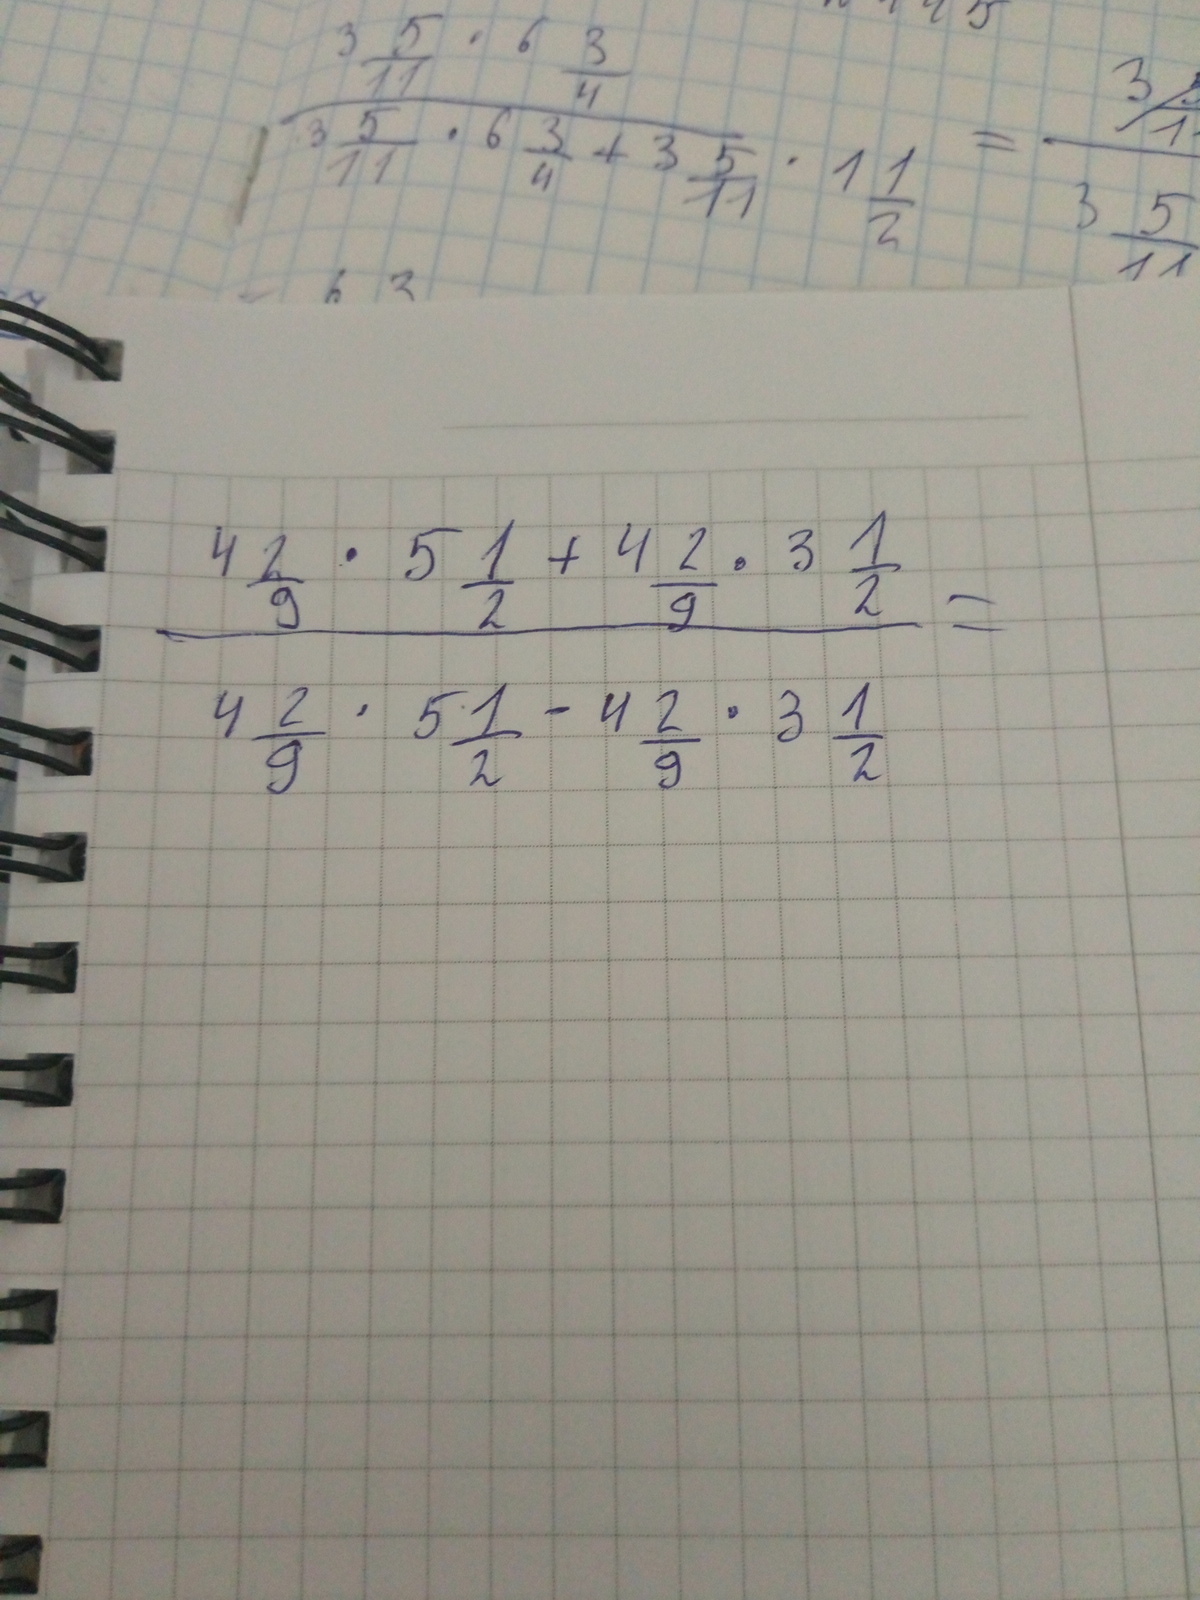 3 5/11 · 6 3/4
3 5/11 · 6 3/4 + 3 5/11 · 1 1/2 = 3
3 5/11
4 2/9 · 5 1/2 + 4 2/9 · 3 1/2 =
4 2/9 · 5 1/2 - 4 2/9 · 3 1/2